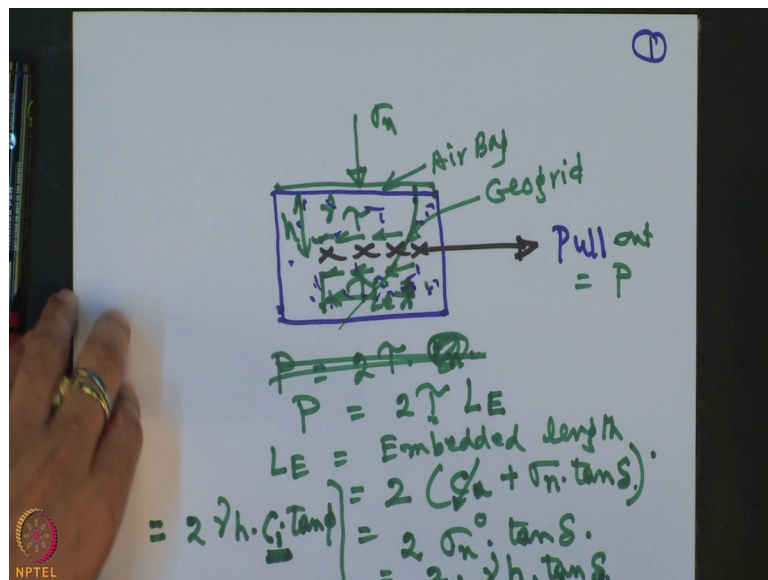 1
σn
Air Bag
Geogrid
h γ τ
Pull out
= P
LE
P = 2 τ.
P = 2 τ LE
LE = Embedded length
= 2 (Ca + σn. tan δ).
0
= 2 γh. Ci tan φ = 2 σn. tan δ.
= 2. γh. tan δ
NPTEL